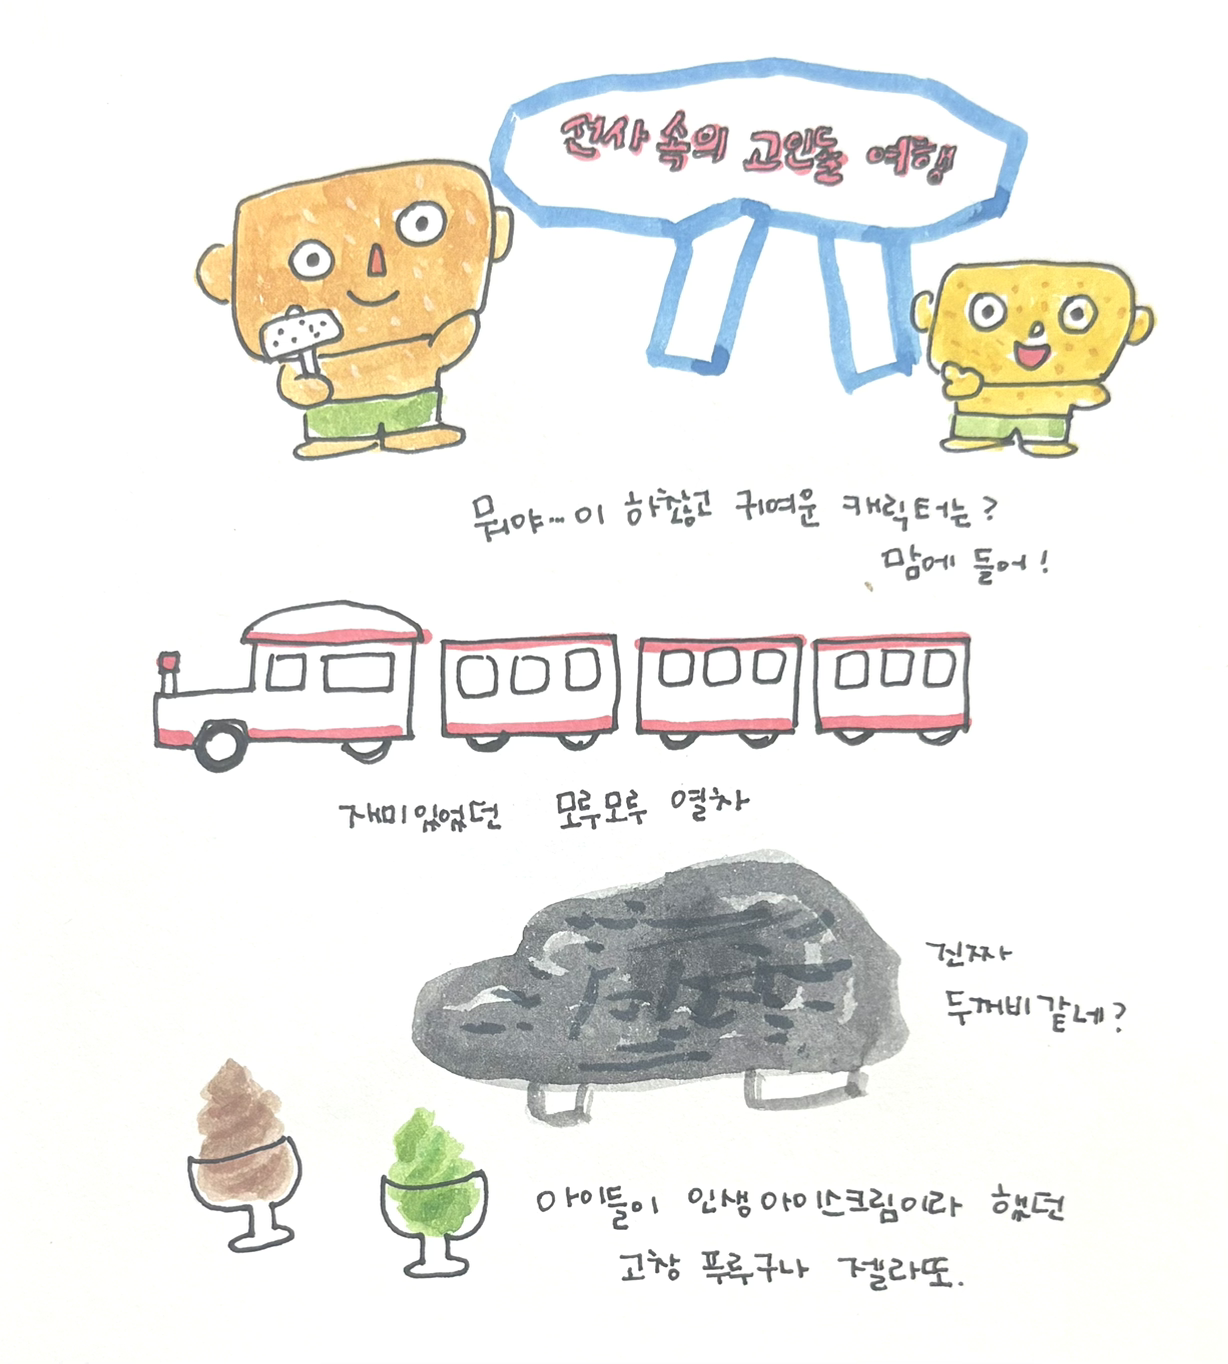 전사 속의 고인돌 여행
뭐야...이 하찮고 귀여운 캐릭터는?
맘에 들어!
재미있었던 모루모루 열차
진짜
두꺼비같네?
아이들이 인생아이스크림이라 했던
고창 푸루구나 젤라또.